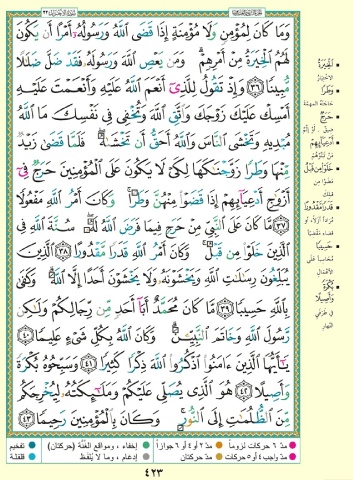 وَمَا كَانَ لِمُؤْمِنٍ وَلَا مُؤْمِنَةٍ إِذَا قَضَى ٱللَّهُ وَرَسُولُهُۥٓ أَمْرًا أَن يَكُونَ
لَهُمُ ٱلْخِيَرَةُ مِنْ أَمْرِهِمْ ۗ وَمَن يَعْصِ ٱللَّهَ وَرَسُولَهُۥ فَقَدْ ضَلَّ ضَلَـٰلًا
مُّبِينًا ٣٦ وَإِذْ تَقُولُ لِلَّذِىٓ أَنْعَمَ ٱللَّهُ عَلَيْهِ وَأَنْعَمْتَ عَلَيْهِ
أَمْسِكْ عَلَيْكَ زَوْجَكَ وَٱتَّقِ ٱللَّهَ وَتُخْفِى فِى نَفْسِكَ مَا ٱللَّهُ
مُبْدِيهِ وَتَخْشَى ٱلنَّاسَ وَٱللَّهُ أَحَقُّ أَن تَخْشَىٰهُ ۖ فَلَمَّا قَضَىٰ زَيْدٌ
مِّنْهَا وَطَرًا زَوَّجْنَـٰكَهَا لِكَىْ لَا يَكُونَ عَلَى ٱلْمُؤْمِنِينَ حَرَجٌ فِىٓ
أَزْوَٰجِ أَدْعِيَآئِهِمْ إِذَا قَضَوْا۟ مِنْهُنَّ وَطَرًا ۚ وَكَانَ أَمْرُ ٱللَّهِ مَفْعُولًا
٣٧ مَّا كَانَ عَلَى ٱلنَّبِىِّ مِنْ حَرَجٍ فِيمَا فَرَضَ ٱللَّهُ لَهُۥ ۖ سُنَّةَ ٱللَّهِ فِى
ٱلَّذِينَ خَلَوْا۟ مِن قَبْلُ ۚ وَكَانَ أَمْرُ ٱللَّهِ قَدَرًا مَّقْدُورًا ٣٨ ٱلَّذِينَ
يُبَلِّغُونَ رِسَـٰلَـٰتِ ٱللَّهِ وَيَخْشَوْنَهُۥ وَلَا يَخْشَوْنَ أَحَدًا إِلَّا ٱللَّهَ ۗ وَكَفَىٰ
بِٱللَّهِ حَسِيبًا ٣٩ مَّا كَانَ مُحَمَّدٌ أَبَآ أَحَدٍ مِّن رِّجَالِكُمْ وَلَـٰكِن
رَّسُولَ ٱللَّهِ وَخَاتَمَ ٱلنَّبِيِّـۧنَ ۗ وَكَانَ ٱللَّهُ بِكُلِّ شَىْءٍ عَلِيمًا ٤٠
يَـٰٓأَيُّهَا ٱلَّذِينَ ءَامَنُوا۟ ٱذْكُرُوا۟ ٱللَّهَ ذِكْرًا كَثِيرًا ٤١ وَسَبِّحُوهُ بُكْرَةً
وَأَصِيلًا ٤٢ هُوَ ٱلَّذِى يُصَلِّى عَلَيْكُمْ وَمَلَـٰٓئِكَتُهُۥ لِيُخْرِجَكُم
مِّنَ ٱلظُّلُمَـٰتِ إِلَى ٱلنُّورِ ۚ وَكَانَ بِٱلْمُؤْمِنِينَ رَحِيمًا ٤٣
الْخِيَرَةُ
الاختيار
وَطَرًا
حاجته المهمة
حَرَجٌ
ضيق
أَدْعِيَائِهِمْ
خَلَوْا مِن قَبْلُ
قَدَرًا مَّقْدُورًا
حَسِيبًا
محاسبا على
الأعمال
بُكْرَةً
وَأَصِيلًا
في طرفي
النهار
مدّ ٦ حركات لزوماً مدّ ٢ أو ٤ أو ٦ جوازاً إخفاء، ومواقع الغنّة (حركتان) تفخيم
مدّ واجب ٤ أو ٥ حركات مدّ حركتان إدغام، وما لا يُلفظ قلقلة
٤٢٣